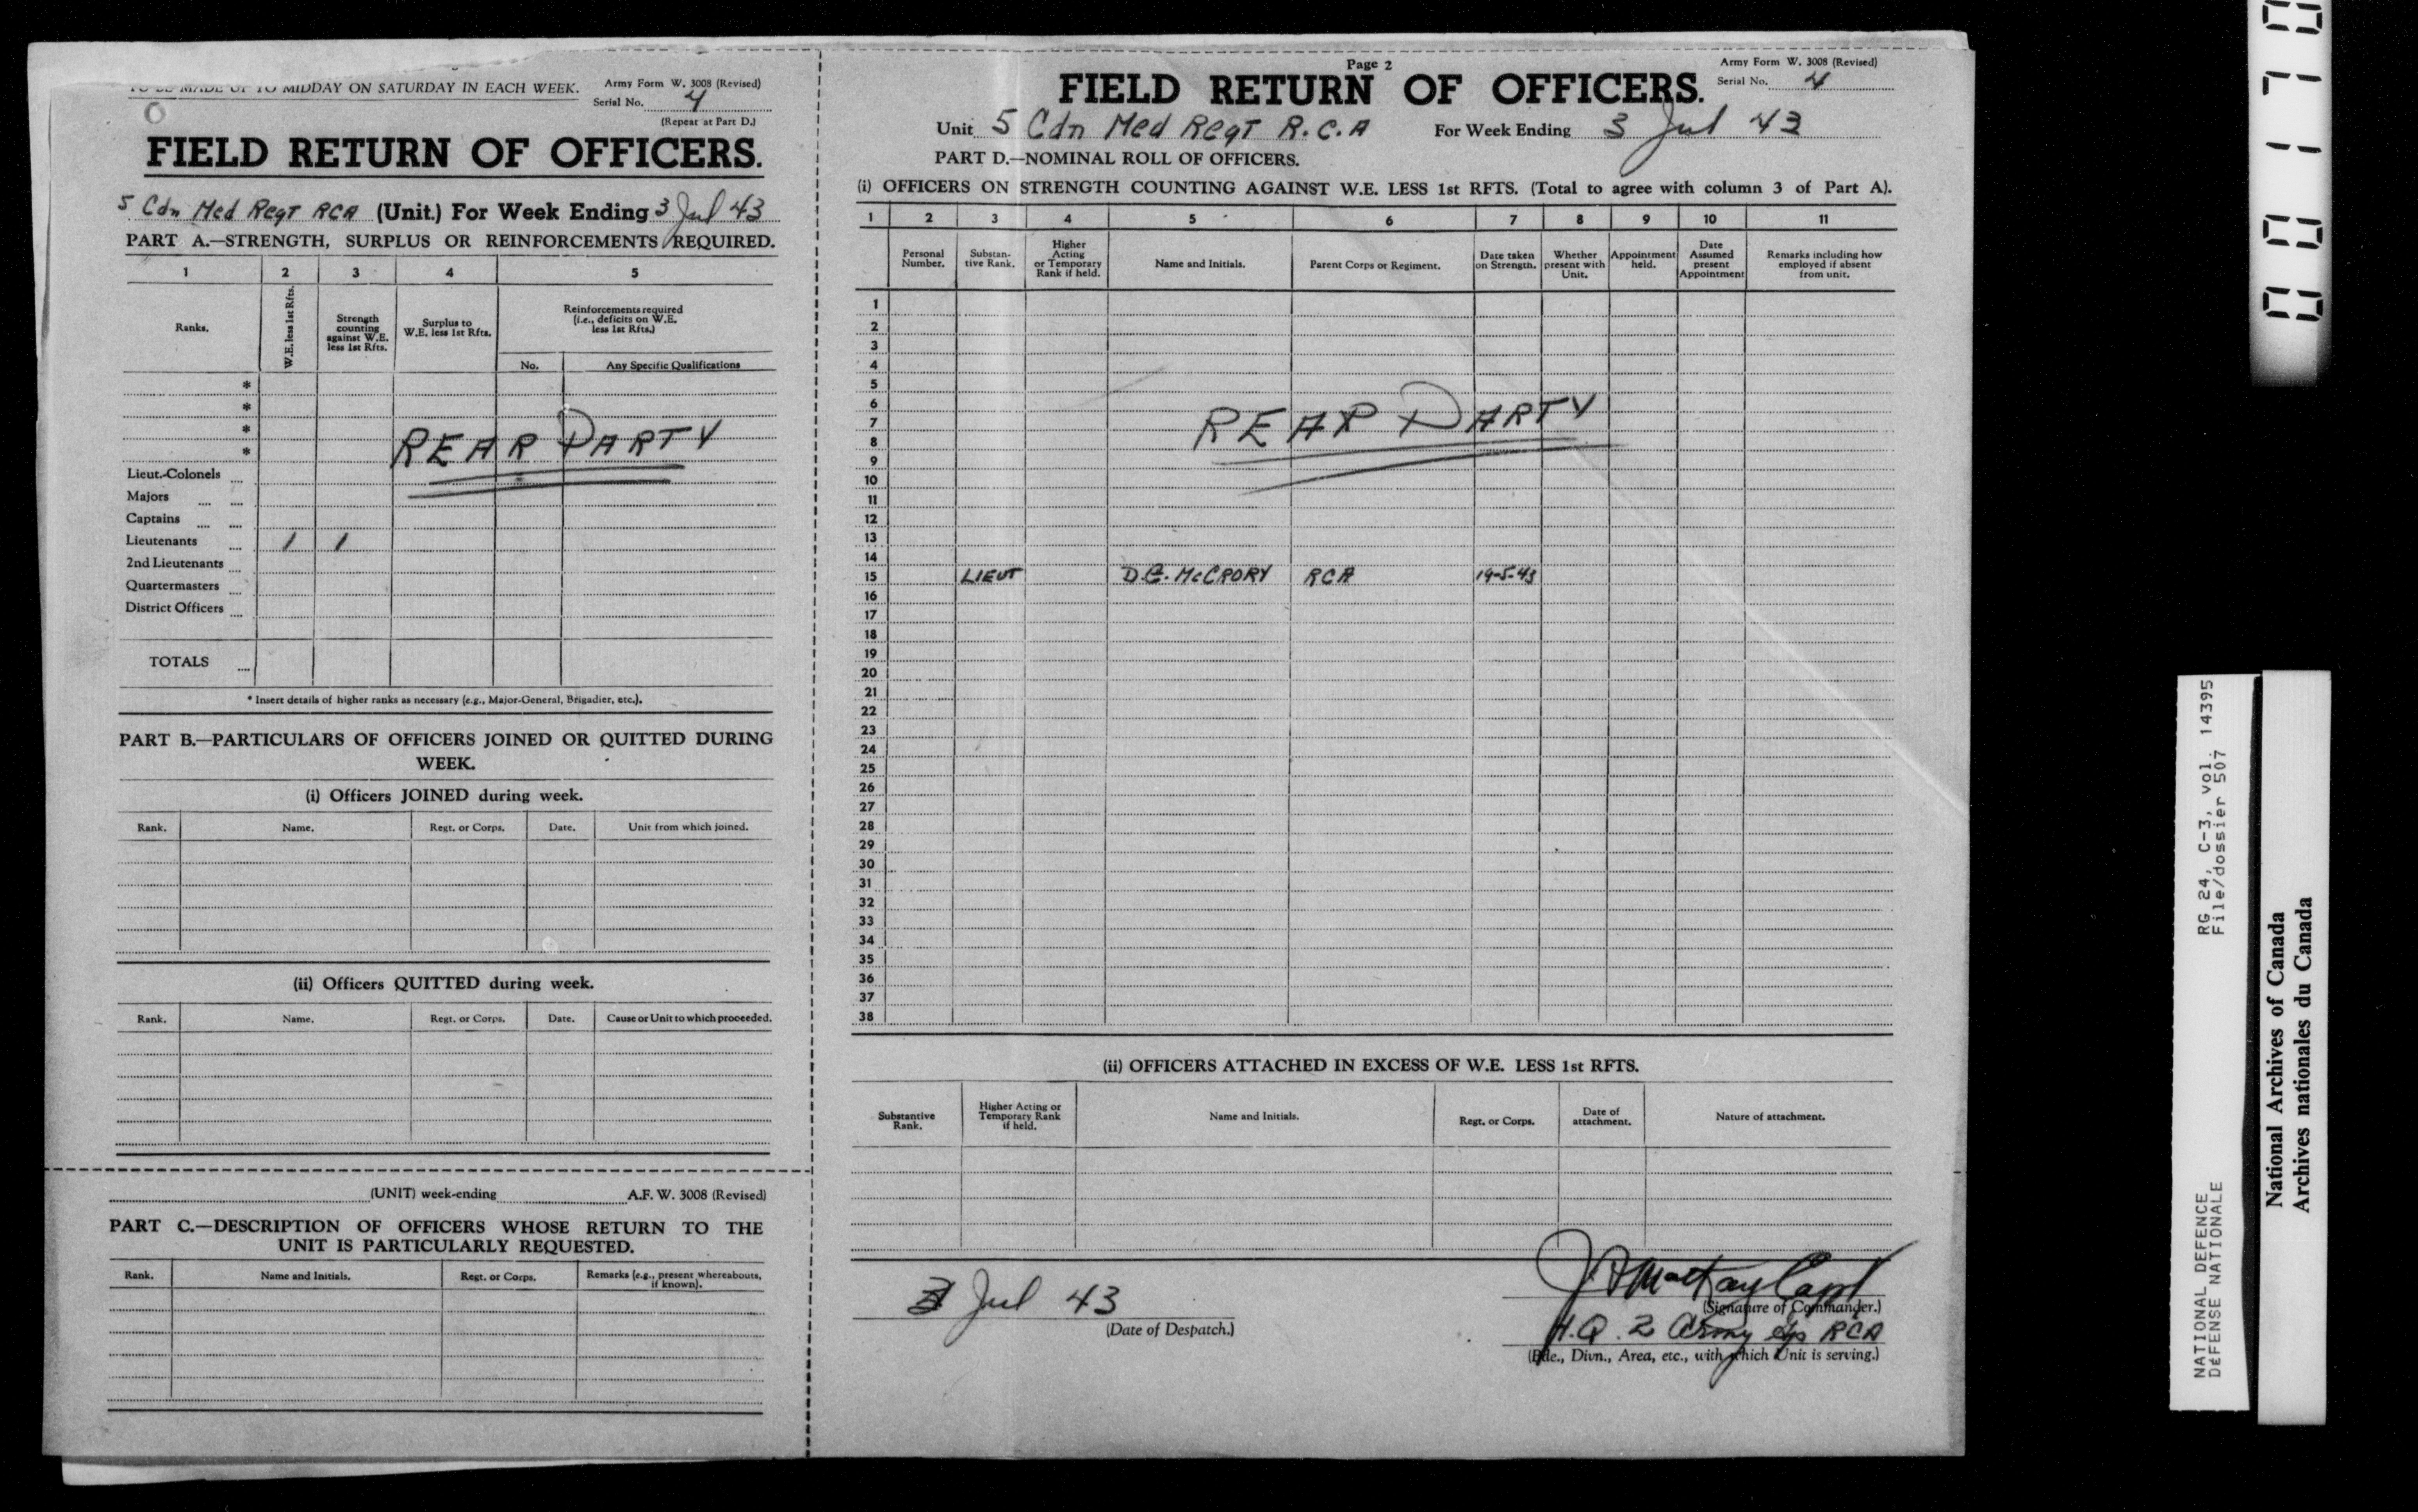 TO BE MADE UP TO MIDDAY ON SATURDAY IN EACH WEEK.
Army Form W. 3008 (Revised)
Serial No. 4
(Repeat at Part D.)
FIELD RETURN OF OFFICERS.
5 Cdn Med Regt RCA (Unit.) For Week Ending 3 Jul 43
PART A.—STRENGTH, SURPLUS OR REINFORCEMENTS REQUIRED.
1 2 3 4 5
Ranks.
W.E. less 1st Rfts.
Strength counting against W.E. less 1st Rfts.
Surplus to W.E. less 1st Rfts.
Reinforcements required (i.e., deficits on W.E. less 1st Rfts.)
No. Any Specific Qualifications
*
*
*
*
REAR PARTY
Lieut.-Colonels ....
Majors .... ....
Captains .... ....
Lieutenants .... 1 1
2nd Lieutenants ....
Quartermasters ....
District Officers ....
TOTALS ....
* Insert details of higher ranks as necessary (e.g., Major-General, Brigadier, etc.).
PART B.—PARTICULARS OF OFFICERS JOINED OR QUITTED DURING
WEEK.
(i) Officers JOINED during week.
Rank. Name. Regt. or Corps. Date. Unit from which joined.
(ii) Officers QUITTED during week.
Rank. Name. Regt. or Corps. Date. Cause or Unit to which proceeded.
(UNIT) week-ending A.F. W. 3008 (Revised)
PART C.—DESCRIPTION OF OFFICERS WHOSE RETURN TO THE
UNIT IS PARTICULARLY REQUESTED.
Rank. Name and Initials. Regt. or Corps. Remarks (e.g., present whereabouts, if known).
Page 2
Army Form W. 3008 (Revised)
FIELD RETURN OF OFFICERS.
Serial No. 4
Unit 5 Cdn Med Regt R.C.A For Week Ending 3 Jul 43
PART D.—NOMINAL ROLL OF OFFICERS.
(i) OFFICERS ON STRENGTH COUNTING AGAINST W.E. LESS 1st RFTS. (Total to agree with column 3 of Part A).
1 2 3 4 5 6 7 8 9 10 11
Personal Number.
Substantive Rank.
Higher Acting or Temporary Rank if held.
Name and Initials.
Parent Corps or Regiment.
Date taken on Strength.
Whether present with Unit.
Appointment held.
Date Assumed present Appointment
Remarks including how employed if absent from unit.
1
2
3
4
5
6
7
REAR PARTY
8
9
10
11
12
13
14
15 LIEUT D.E. McCRORY RCA 19-5-43
16
17
18
19
20
21
22
23
24
25
26
27
28
29
30
31
32
33
34
35
36
37
38
(ii) OFFICERS ATTACHED IN EXCESS OF W.E. LESS 1st RFTS.
Substantive Rank.
Higher Acting or Temporary Rank if held.
Name and Initials.
Regt. or Corps.
Date of attachment.
Nature of attachment.
3 Jul 43
(Date of Despatch.)
J A MacKay Capt
(Signature of Commander.)
H.Q. 2 Army Gp RCA
(Bde., Divn., Area, etc., with which Unit is serving.)
001710
RG 24, C-3, vol. 14395
File/dossier 507
NATIONAL DEFENCE
DEFENSE NATIONALE
National Archives of Canada
Archives nationales du Canada